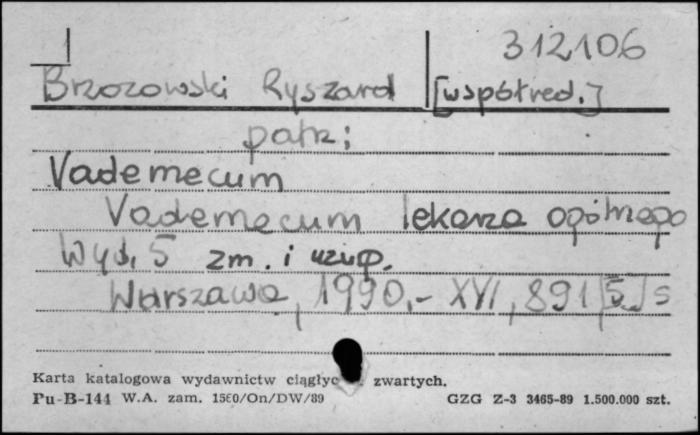 312106
Brzozowski Ryszard [współred.]
patrz:
Vademecum
Vademecum lekarza ogólnego
Wyd. 5 zm. i uzup.
Warszawa, 1990.- XVI, 891, [5] s
Karta katalogowa wydawnictw ciągłyc zwartych.
Pu-B-144 W.A. zam. 1560/On/DW/89 GZG Z-3 3465-89 1.500.000 szt.